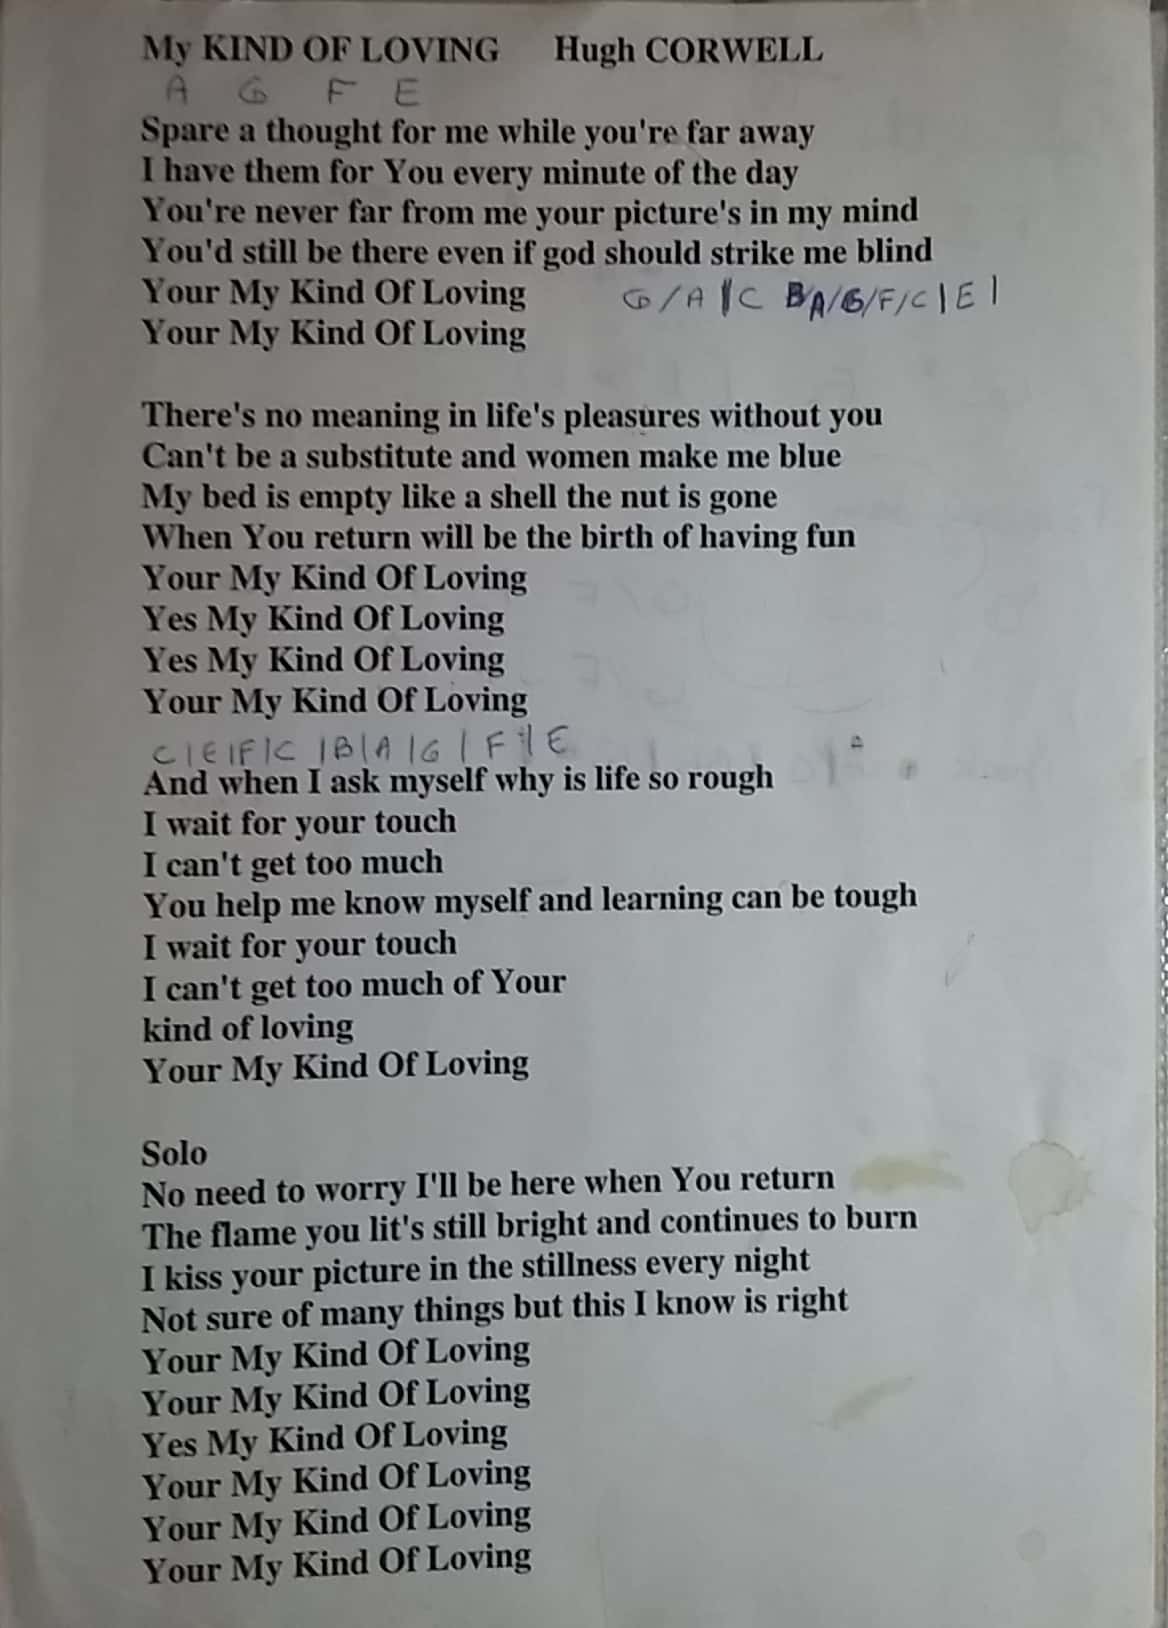 My KIND OF LOVING Hugh CORWELL
A G F E
Spare a thought for me while you're far away
I have them for You every minute of the day
You're never far from me your picture's in my mind
You'd still be there even if god should strike me blind
Your My Kind Of Loving G/A||C B/A/G/F/C|E|
Your My Kind Of Loving
There's no meaning in life's pleasures without you
Can't be a substitute and women make me blue
My bed is empty like a shell the nut is gone
When You return will be the birth of having fun
Your My Kind Of Loving
Yes My Kind Of Loving
Yes My Kind Of Loving
Your My Kind Of Loving
C|E|F|C |B|A|G|F||E
And when I ask myself why is life so rough
I wait for your touch
I can't get too much
You help me know myself and learning can be tough
I wait for your touch
I can't get too much of Your
kind of loving
Your My Kind Of Loving
Solo
No need to worry I'll be here when You return
The flame you lit's still bright and continues to burn
I kiss your picture in the stillness every night
Not sure of many things but this I know is right
Your My Kind Of Loving
Your My Kind Of Loving
Yes My Kind Of Loving
Your My Kind Of Loving
Your My Kind Of Loving
Your My Kind Of Loving